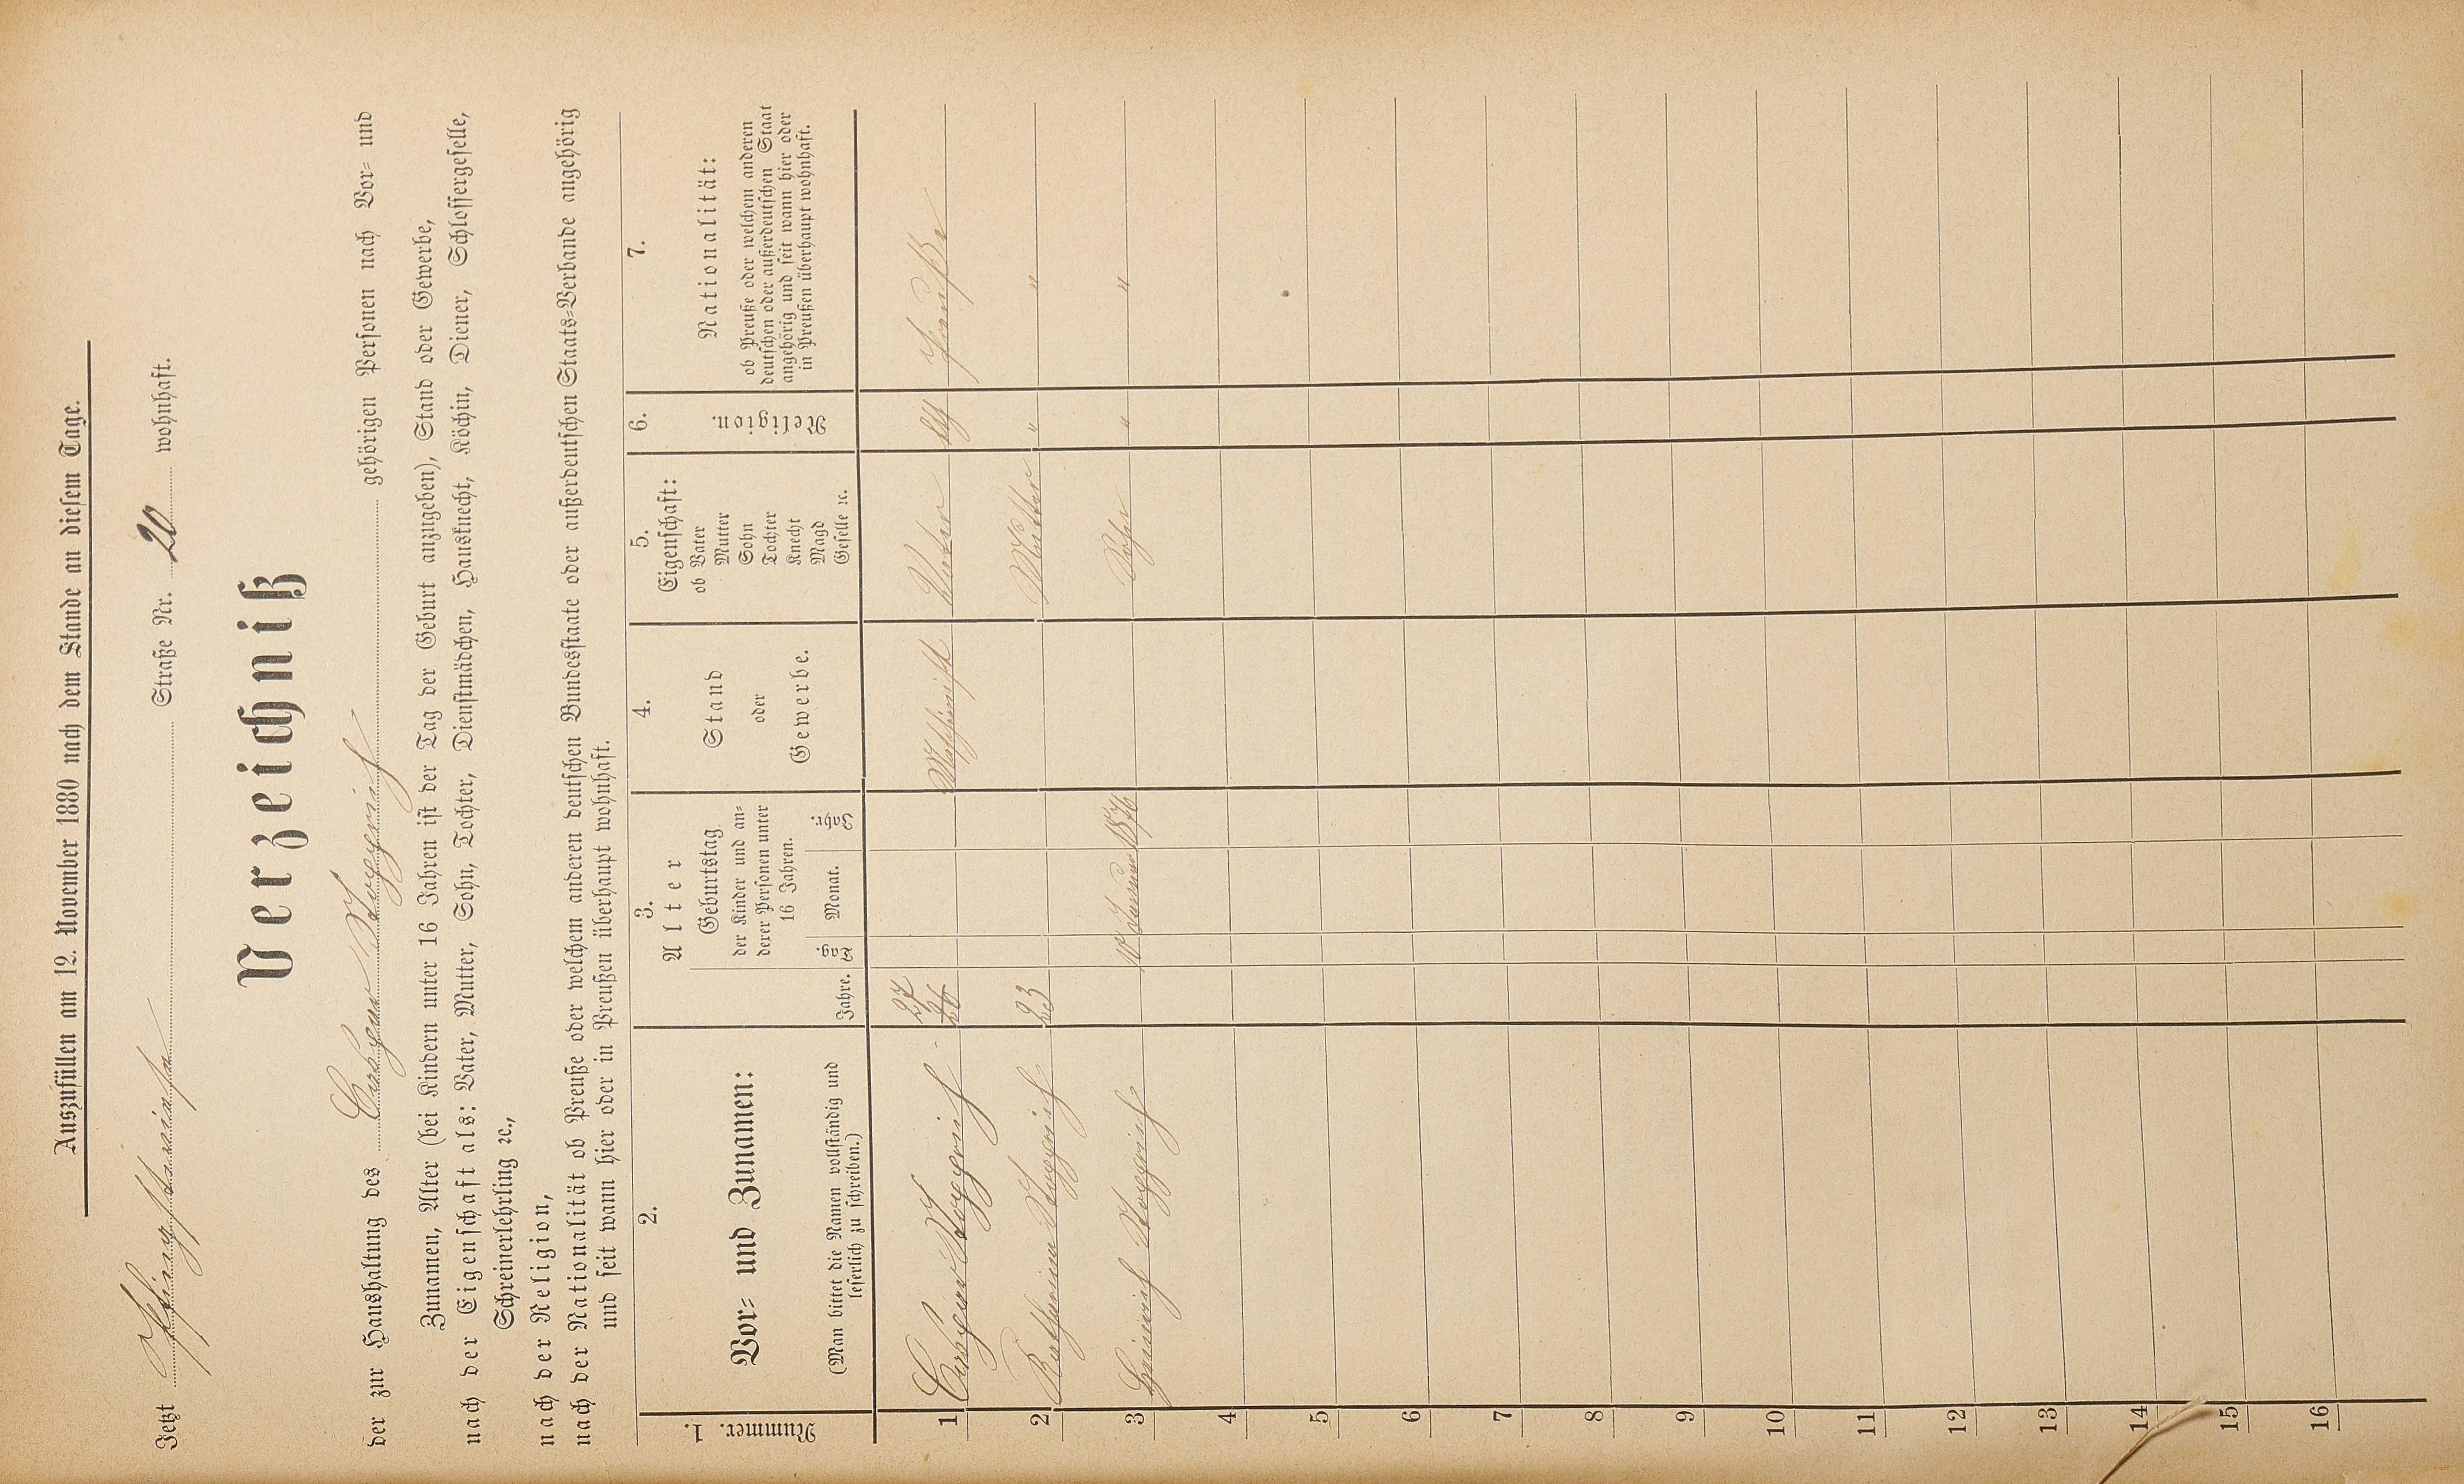 Auszufüllen am 12. November 1880 nach dem Stande an diesem Tage.
Jetzt Straße Nr. 20 wohnhaft.
Verzeichniß
der zur Haushaltung des gehörigen Personen nach Vor- und
Zunamen, Alter (bei Kindern unter 16 Jahren ist der Tag der Geburt anzugeben), Stand oder Gewerbe,
nach der Eigenschaft als: Vater, Mutter, Sohn, Tochter, Dienstmädchen, Hausknecht, Köchin, Diener, Schlossergeselle,
Schreinerlehrling ꝛc.,
nach der Religion,
nach der Nationalität ob Preuße oder welchem anderen deutschen Bundesstaate oder außerdeutschen Staats-Verbande angehörig
und seit wann hier oder in Preußen überhaupt wohnhaft.
1. Nummer.
2.
Vor- und Zunamen:
(Man bittet die Namen vollständig und
leserlich zu schreiben.)
3.
Alter
Jahre.
Geburtstag
der Kinder und an-
derer Personen unter
16 Jahren.
Tag Monat. Jahr.
4.
Stand
oder
Gewerbe.
5.
Eigenschaft:
ob Vater
Mutter
Sohn
Tochter
Knecht
Magd
Geselle ꝛc.
6.
Religion.
7.
Nationalität:
ob Preuße oder welchem anderen
deutschen oder außerdeutschen Staat
angehörig und seit wann hier oder
in Preußen überhaupt wohnhaft.
1 27 26 Maschinist Vater Preuße
2 23 Mutter " "
3 Heinrich 10 Januar 1876 Sohn " "
4
5
6
7
8
9
10
11
12
13
14
15
16